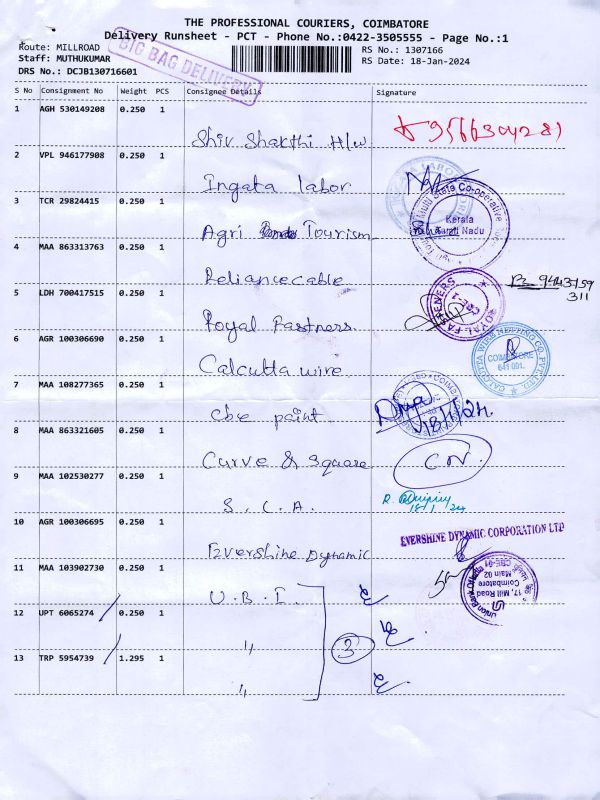 THE PROFESSIONAL COURIERS, COIMBATORE
Delivery Runsheet - PCT - Phone No.:0422-3505555 - Page No.:1
Route: MILLROAD
RS No.: 1307166
Staff: MUTHUKUMAR
RS Date: 18-Jan-2024
DRS No.: DCJB130716601
BIG BAG DELIVERY
S No Consignment No Weight PCS Consignee Details Signature
1 AGH 530149208 0.250 1
Shiv Shakthi H/w 9566304281
2 VPL 946177908 0.250 1
Ingata labor
3 TCR 29824415 0.250 1
Agri Tourism
Multi State Co-operative
Kerala
Tamil Nadu
4 MAA 863313763 0.250 1
Reliance cable 9443759
311
5 LDH 700417515 0.250 1
Royal Fastners
ROYAL FASTENERS
CBE-2
6 AGR 100306690 0.250 1
Calcutta wire
CALCUTTA WIRE NETTING CO. PVT LTD
COIMBATORE
641 001.
7 MAA 108277365 1
Cbe paint 18/1/24
8 MAA 863321605 0.250 1
Curve & square C.N.
9 MAA 102530277 0.250 1
S. C. A. 18/1/24
10 AGR 100306695 0.250 1
Evershine Dynamic
EVERSHINE DYNAMIC CORPORATION LTD
11 MAA 103902730 0.250 1
U. B. I.
Union Bank Of India
17, Mill Road
Main 02
Coimbatore
CBE-01
12 UPT 6065274 0.250 1
" 3
13 TRP 5954739 1.295 1
"